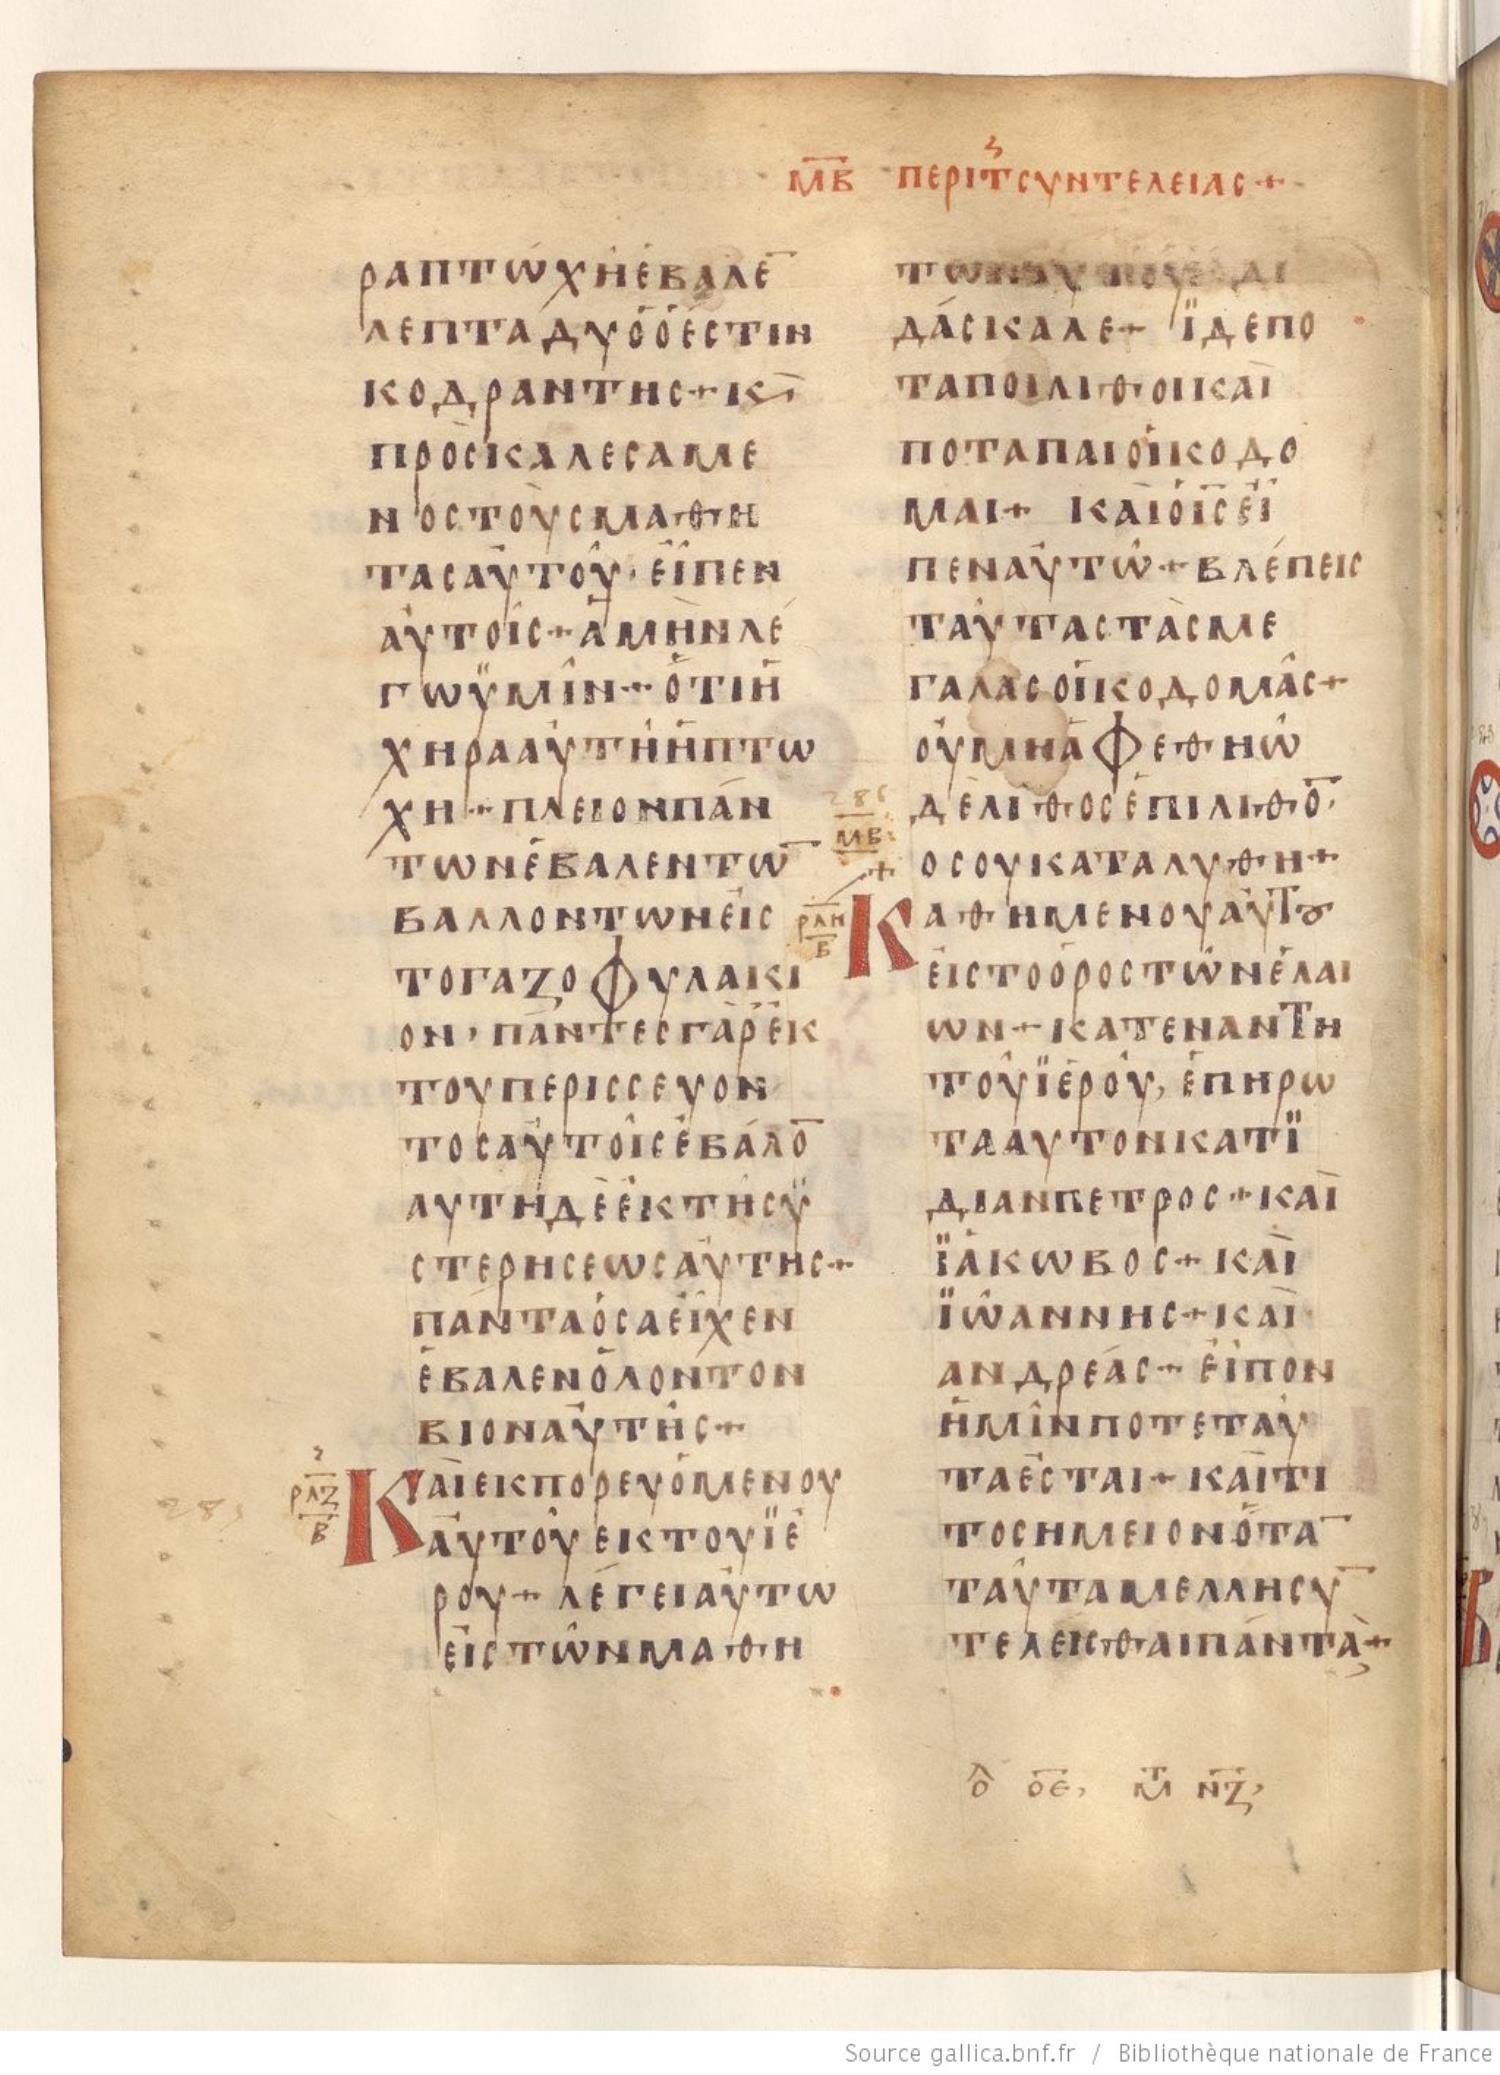 ΜΒ ΠΕΡΙ Τ ΣΥΝΤΕΛΕΙΑΣ+
ΡΑΠΤΩΧΗΕΒΑΛΕ̅
ΛΕΠΤΑΔΥΟΟΕΣΤΙΝ
ΚΟΔΡΑΝΤΗΣ+Κ̀
ΠΡΟΣΚΑΛΕΣΑΜΕ
ΝΟΣΤΟΥΣΜΑΘΗ
ΤΑΣΑΥΤΟΥ·ΕΙΠΕΝ
ΑΥΤΟΙΣ+ΑΜΗΝΛΕ
ΓΩΫΜΙΝ+ΟΤΙΗ
ΧΗΡΑΑΥΤΗΗΠΤΩ
ΧΗ+ΠΛΕΙΟΝΠΑΝ
ΤΩΝΕΒΑΛΕΝΤΩ̅
ΒΑΛΛΟΝΤΩΝΕΙΣ
ΤΟΓΑΖΟΦΥΛΑΚΙ
ΟΝ,ΠΑΝΤΕΣΓΑΡΕΚ
ΤΟΥΠΕΡΙΣΣΕΥΟΝ
ΤΟΣΑΥΤΟΙΣΕΒΑΛΟ̅
ΑΥΤΗΔΕΕΚΤΗΣΫ
ΣΤΕΡΗΣΕΩΣΑΥΤΗΣ+
ΠΑΝΤΑΟΣΑΕΙΧΕΝ
ΕΒΑΛΕΝΟΛΟΝΤΟΝ
ΒΙΟΝΑΥΤΗΣ+
ΡΛΖ
Β
ΚΑΙΕΚΠΟΡΕΥΟΜΕΝΟΥ
ΑΥΤΟΥΕΚΤΟΥΪΕ
ΡΟΥ+ΛΕΓΕΙΑΥΤΩ
ΕΙΣΤΩΝΜΑΘΗ
ΤΩΝΑΥΤΟΥ ΔΙ
ΔΑΣΚΑΛΕ+ ΪΔΕΠΟ
ΤΑΠΟΙΛΙΘΟΙΚΑΙ
ΠΟΤΑΠΑΙΟΙΚΟΔΟ
ΜΑΙ+ ΚΑΙΟΙ̅Σ̅ΕΙ
ΠΕΝΑΥΤΩ+ΒΛΕΠΕΙΣ
ΤΑΥΤΑΣΤΑΣΜΕ
ΓΑΛΑΣΟΙΚΟΔΟΜΑΣ+
ΟΥΜΗΑΦΕΘΗΩ
ΔΕΛΙΘΟΣΕΠΙΛΙΘΟ̅·
ΜΒ
ΟΣΟΥΚΑΤΑΛΥΘΗ+
ΡΛΗ
Β
ΚΑΘΗΜΕΝΟΥΑΥΤȢ
ΕΙΣΤΟΟΡΟΣΤΩΝΕΛΑΙ
ΩΝ+ΚΑΤΕΝΑΝΤΗ
ΤΟΥΪΕΡΟΥ,ΕΠΗΡΩ
ΤΑΑΥΤΟΝΚΑΤΪ
ΔΙΑΝΠΕΤΡΟΣ+ΚΑΙ
ΪΑΚΩΒΟΣ+ΚΑΙ
ΪΩΑΝΝΗΣ+ΚΑΙ
ΑΝΔΡΕΑΣ+ΕΙΠΟΝ
ΗΜΙΝΠΟΤΕΤΑΥ
ΤΑΕΣΤΑΙ+ΚΑΙΤΙ
ΤΟΣΗΜΕΙΟΝΟΤΑ̅
ΤΑΥΤΑΜΕΛΛΗΣΥ̅
ΤΕΛΕΙΣΘΑΙΠΑΝΤΑ+
ΟΕ, Μ ΝΖ,
Source gallica.bnf.fr / Bibliothèque nationale de France